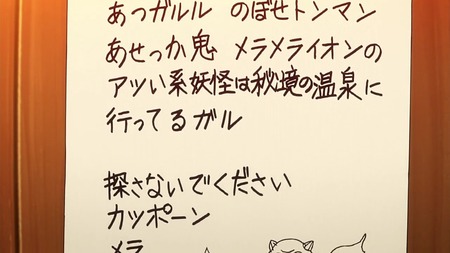 あつガルル のぼせトンマン
あせっか鬼 メラメライオンの
アツい系妖怪は秘境の温泉に
行ってるガル
探さないでください
カッポーン
メラ